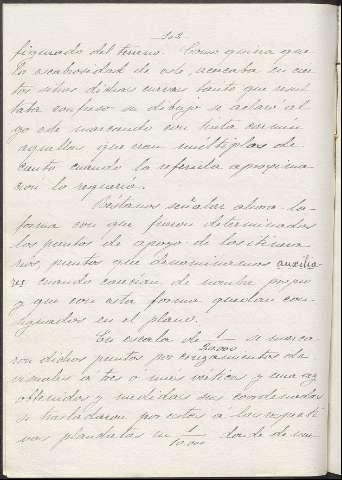 figurado del terreno. Como quiera que
la escabrosidad de este, acercaba en cier
tos sitios dichas curvas tanto que resul
taba confuso su dibujo se aclaró al
go de marcando con tinta carmin
aquellas que eran múltiplos de
cuando la referida aproxima
cion lo requeria.
Réstanos señalar ahora la
forma con que fueron determinados
los puntos de apoyo de los itinera
rios, puntos que denominamos auxilia
res cuando carecian de nombre propio
y que con esta forma quedan con
signados en el plano.
En escala de 1/20.000 se marca
ron dichos puntos por cruzamientos de
visuales a tres ó mas vértices y una vez
obtenidos y medidas sus coordenadas
se trasladaron por estas á las respecti
vas planchetas en 1/10.000 donde de